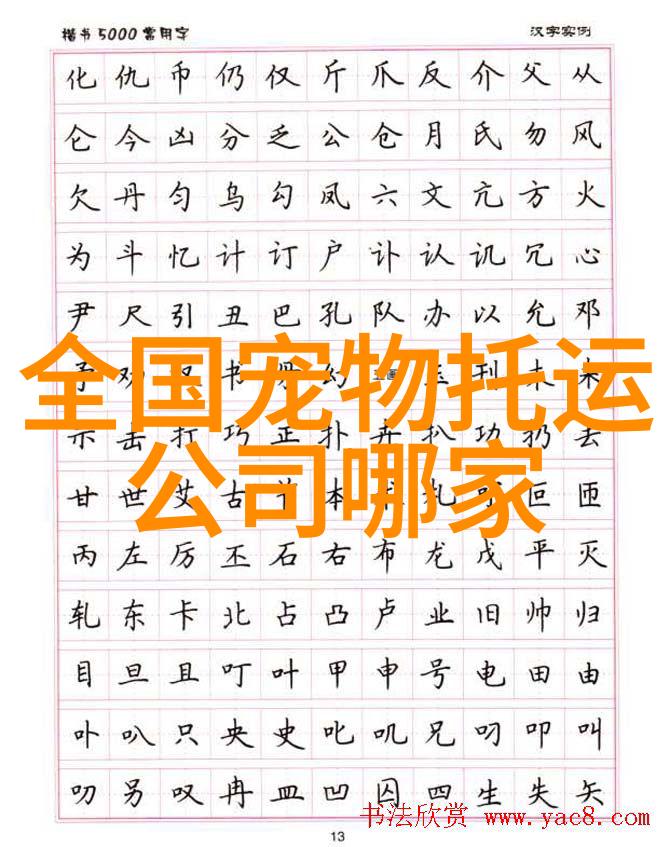 楷书5000常用字 汉字实例
化仇币仍仅斤爪反介父从
仑今凶分乏公仓月氏勿风
欠丹匀乌勾凤六文亢方火
为斗忆计订户讣认讥冗心
尹尺引丑巴孔队办以允邓
予劝 书 幻 刊未末
全国宠物托运
示击打巧正扑卉扒功扔去
公司哪家
甘世艾古 本 札 叵匝
丙左厉丕石右布龙戊平灭
轧东卡北占凸卢业旧帅归
目旦且叮叶甲申号电田由
卟叭只央史叱叽兄叼叩叫
叨另叹冉皿凹囚四生失矢
书法欣赏 www.yac8.com
13